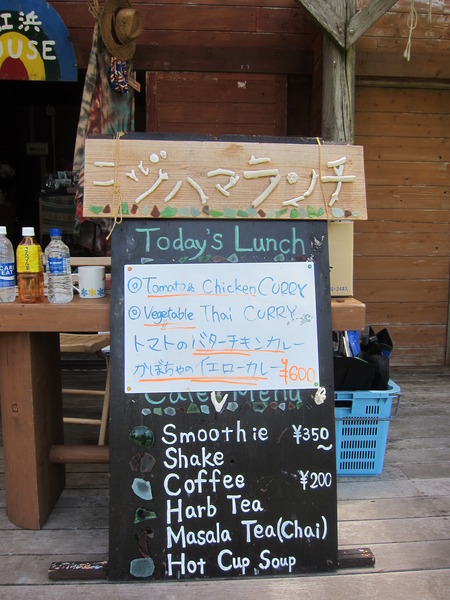 江浜
HOUSE
ニヅハマランチ
Today's Lunch
◎ Tomato & Chicken CURRY
◎ Vegetable Thai CURRY
トマトのバターチキンカレー
かぼちゃのイエローカレー ¥600
Cafe Menu
Smoothie ¥350
~
Shake
Coffee ¥200
Harb Tea
Masala Tea(Chai)
Hot Cup Soup